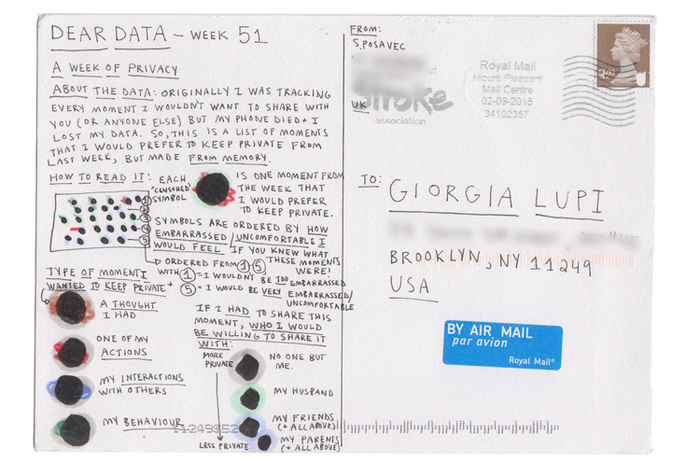 DEAR DATA - WEEK 51
A WEEK OF PRIVACY
ABOUT THE DATA: ORIGINALLY I WAS TRACKING
EVERY MOMENT I WOULDN'T WANT TO SHARE WITH
YOU (OR ANYONE ELSE) BUT MY PHONE DIED + I
LOST MY DATA. SO, THIS IS A LIST OF MOMENTS
THAT I WOULD PREFER TO KEEP PRIVATE FROM
LAST WEEK, BUT MADE FROM MEMORY.
HOW TO READ IT:
EACH
"CENSORED"
SYMBOL
IS ONE MOMENT FROM
THE WEEK THAT
I WOULD PREFER
TO KEEP PRIVATE.
1
2
3
4
5
SYMBOLS ARE ORDERED BY HOW
EMBARRASSED/UNCOMFORTABLE I
WOULD FEEL IF YOU KNEW WHAT
THESE MOMENTS
WERE!
ORDERED FROM 1-5
WITH 1 = I WOULDN'T BE TOO EMBARRASSED
+ 5 = I WOULD BE VERY EMBARRASSED/
UNCOMFORTABLE
TYPE OF MOMENT I
WANTED TO KEEP PRIVATE
A THOUGHT
I HAD
ONE OF MY
ACTIONS
MY INTERACTIONS
WITH OTHERS
MY BEHAVIOUR
IF I HAD TO SHARE THIS
MOMENT, WHO I WOULD
BE WILLING TO SHARE IT
WITH:
MORE
PRIVATE
NO ONE BUT
ME.
MY HUSBAND
MY FRIENDS
(+ ALL ABOVE)
LESS PRIVATE
MY PARENTS
(+ ALL ABOVE)
FROM:
S. POSAVEC
UK
Stroke
association
Royal Mail
Mount Pleasant
Mail Centre
02-09-2015
34102357
TO:
GIORGIA LUPI
BROOKLYN, NY 11249
USA
BY AIR MAIL
par avion
Royal Mail®